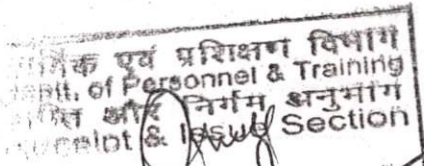 कार्मिक एवं प्रशिक्षण विभाग
Deptt. of Personnel & Training
प्राप्ति और निर्गम अनुभाग
Receipt & Issue Section